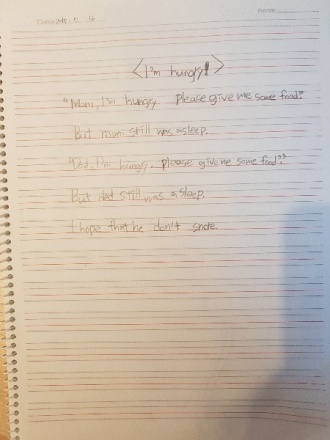 <I'm hungry!>
"Mom, I'm hungry Please give me some food?"
But mom still was asleep.
"Dad, I'm hungry. please give me some food?"
But dad still was a sleep.
I hope that he don't snore.